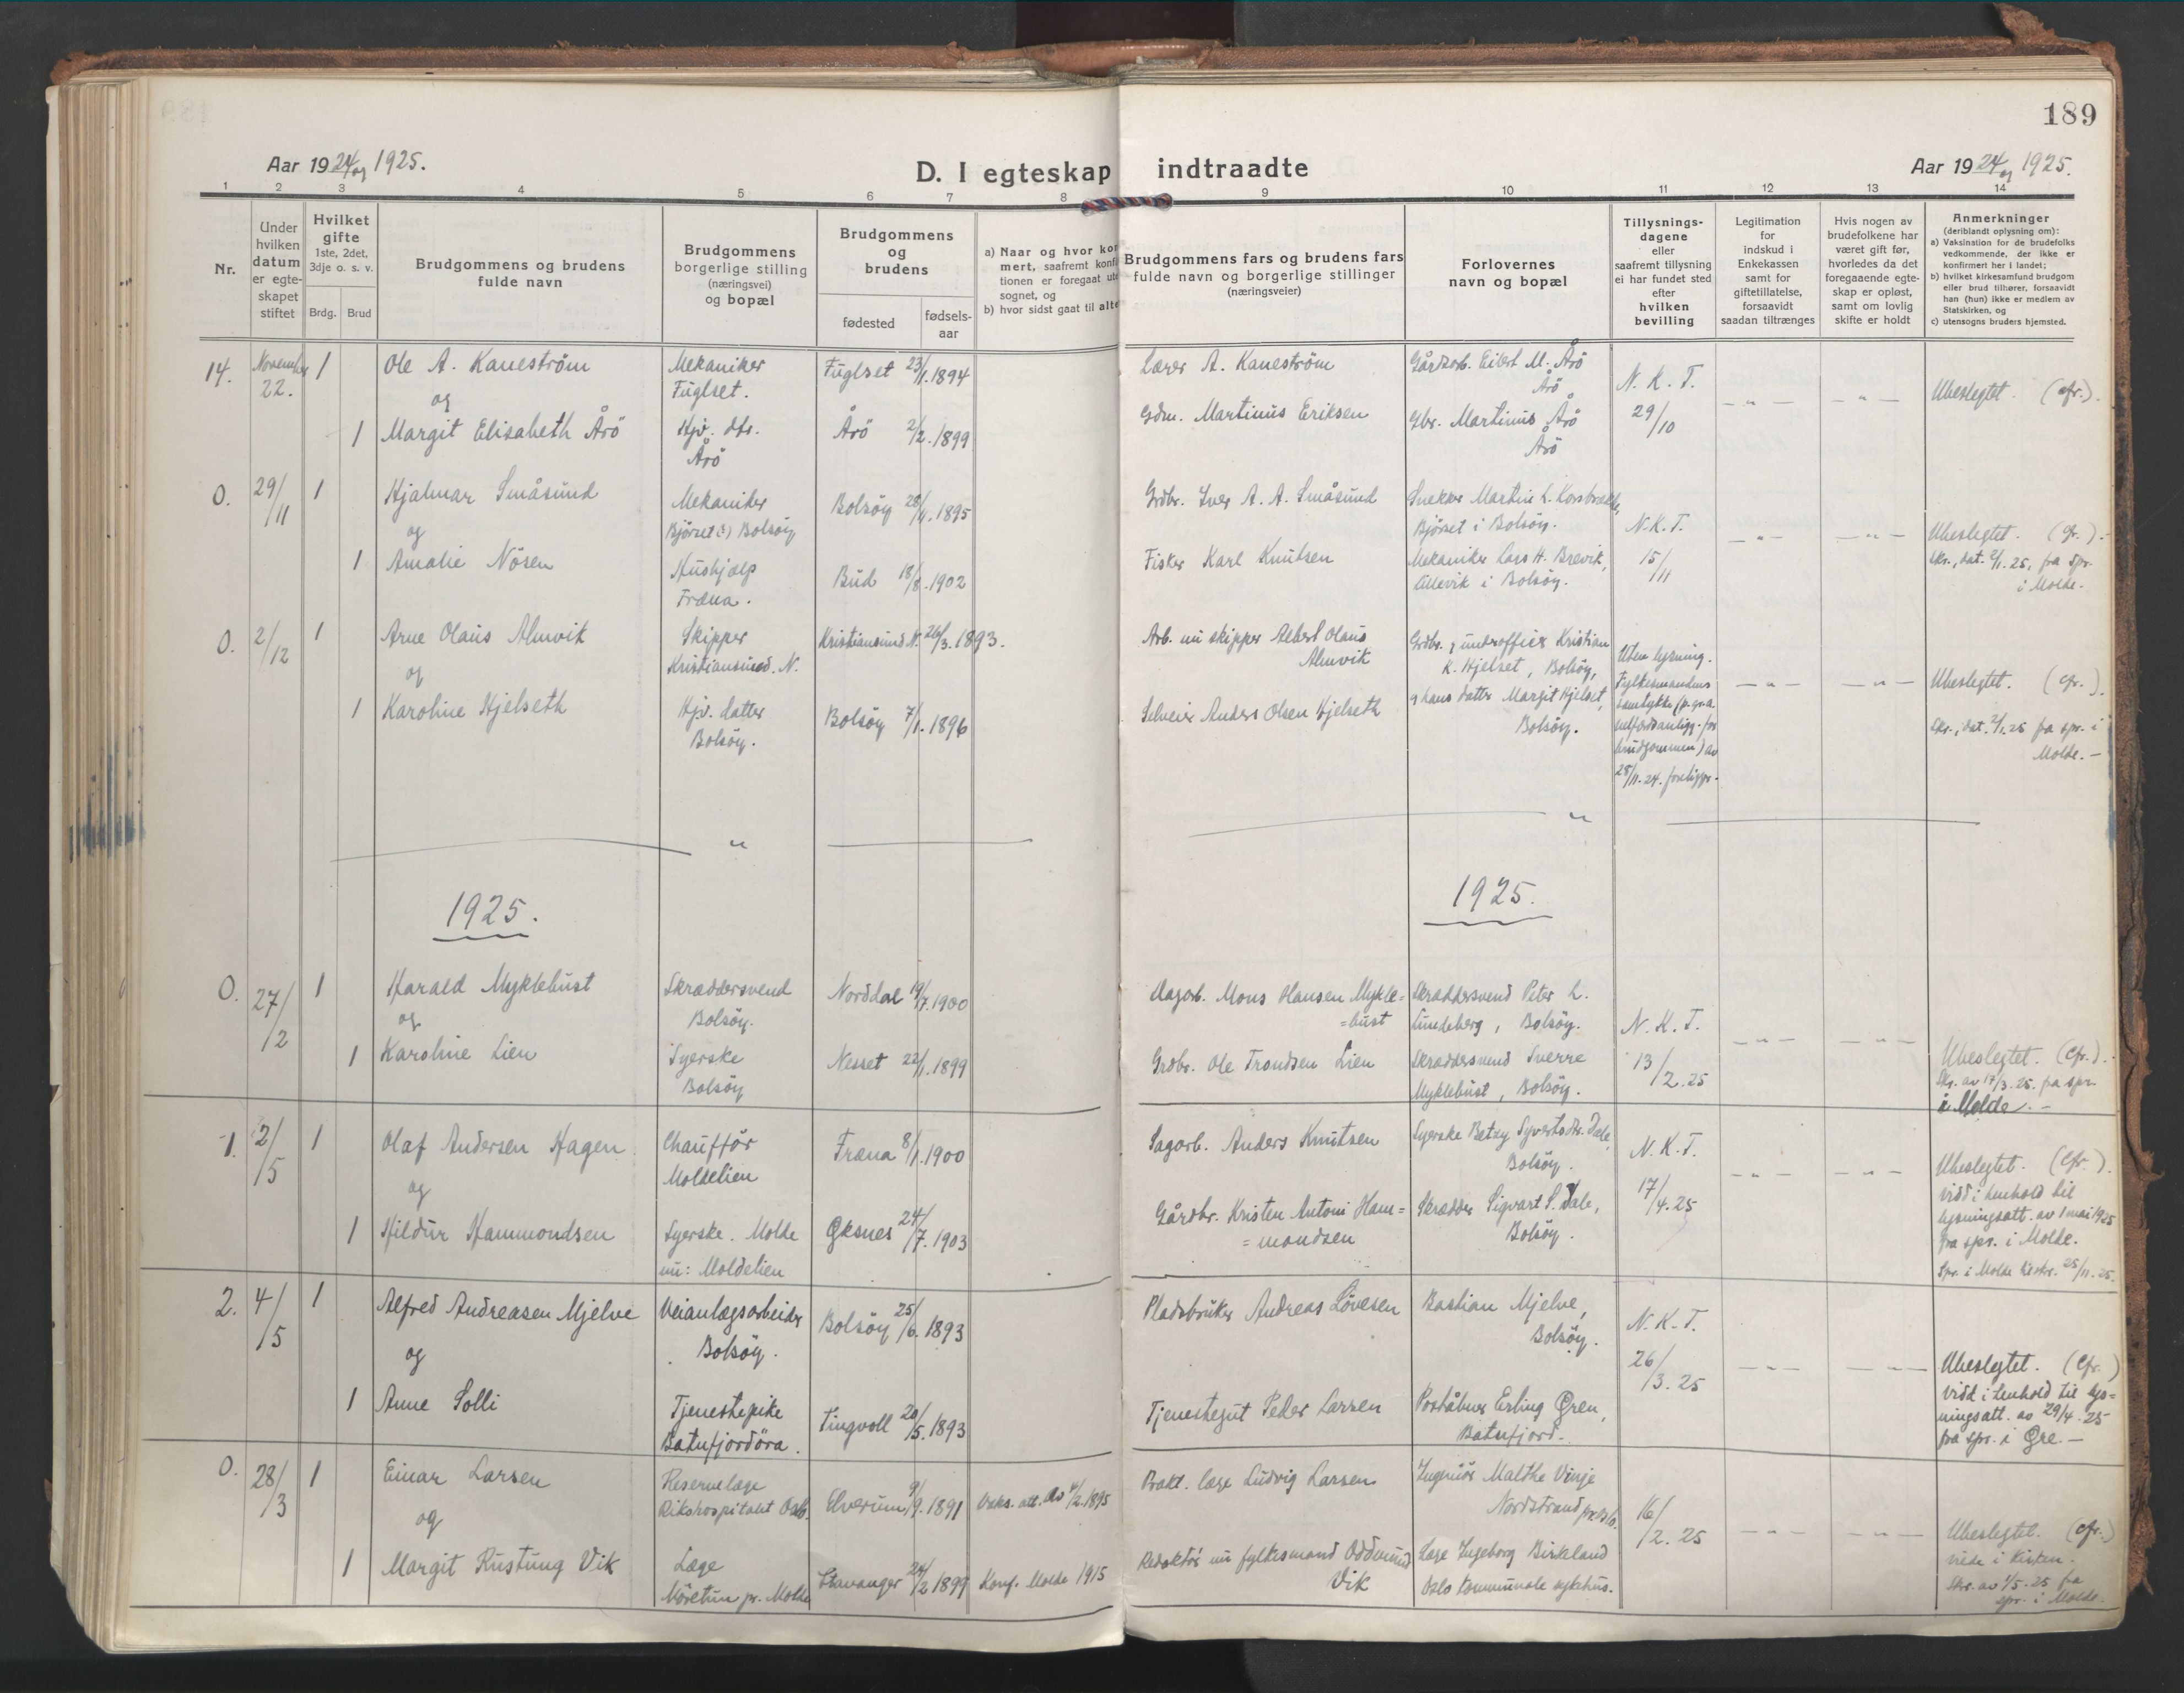 189
Aar 1924 og 1925.
D. I egteskap indtraadte
Aar 1924 og 1925.
1 2 3 4 5 6 7 8 9 10 11 12 13 14
Nr.
Under
hvilken
datum
er egte-
skapet
stiftet
Hvilket
gifte
1ste, 2det,
3dje o. s. v.
Brdg. Brud
Brudgommens og brudens
fulde navn
Brudgommens
borgerlige stilling
(næringsvei)
og bopæl
Brudgommens
og
brudens
fødested
fødsels-
aar
a) Naar og hvor
mert, saafremt
tionen er foregaat
sognet, og
b) hvor sidst gaat til
Brudgommens fars og brudens fars
fulde navn og borgerlige stillinger
(næringsveier)
Forlovernes
navn og bopæl
Tillysnings-
dagene
eller
saafremt tillysning
ei har fundet sted
efter
hvilken
bevilling
Legitimation
for
indskud i
Enkekassen
samt for
giftetillatelse,
forsaavidt
saadan tiltrænges
Hvis nogen av
brudefolkene har
været gift før,
hvorledes da det
foregaaende egte-
skap er opløst,
samt om lovlig
skifte er holdt
Anmerkninger
(deriblandt oplysning om):
a) Vaksination for de brudefolks
vedkommende, der ikke er
konfirmert her i landet;
b) hvilket kirkesamfund brudgom
eller brud tilhører, forsaavidt
han (hun) ikke er medlem av
Statskirken, og
c) utensogns bruders hjemsted.
14.
November
22.
1
Ole A. Kaneström
og
Mekaniker
Fuglset.
Fuglset 23/1. 1894
Lærer A. Kaneström
Gårdarb. Eilert M. Årö
Årö
N. K. T.
29/10
— " —
— " —
Ubeslegtet. (cfr.).
1
Margit Elisabeth Årö
Hjv. dtr.
Årö
Årö 2/2. 1899
Gdm. Martinus Eriksen
Gbr. Martinus Årö
Årö
0.
29/11
1
Hjalmar Småsund
og
Mekaniker
Björset i Bolsöy
Bolsöy 28/4. 1895
Grdbr. Iver A. A. Småsund
Snekker Martin L. Korsbrekke,
Bjørset i Bolsöy.
N. K. T.
15/11
— " —
— " —
Ubeslegtet. (cfr.).
Skr., dat. 2/1. 25, fra spr.
i Molde.
1
Amalie Nösen
Hushjælp
Fræna.
Bud 18/8. 1902
Fisker Karl Knutsen
Mekaniker Lars H. Brevik,
Lillevik i Bolsöy.
0.
2/12
1
Arne Olaus Almvik
og
Skipper
Kristiansund. N.
Kristiansund N. 26/3. 1893.
Arb. nu skipper Albert Olaus
Almvik
Grdbr. & underofficer Kristian
K. Hjelset, Bolsöy,
& hans datter Margit Hjelset,
Bolsöy.
Uten lysning.
Fylkesmandens
samtykke (p. gr. a.
brudgommen) av
28/11. 24. foreligger.
— " —
— " —
Ubeslegtet. (cfr.).
Skr., dat. 2/1. 25 fra spr. i
Molde. —
1
Karoline Hjelseth
Hjv. datter
Bolsöy.
Bolsöy 7/1. 1896
Selveier Anders Olsen Hjelseth
"
"
1925.
1925.
0.
27/2
1
Harald Myklebust
og
Skræddersvend
Bolsöy.
Norddal 19/7. 1900
Dagarb. Mons Hansen Mykle=
=bust
Skræddersvend Peter L.
Lundeberg, Bolsöy.
N. K. T.
13/2. 25
— " —
— " —
Ubeslegtet. (cfr.).
Skr. av 17/3. 25. fra spr.
i Molde. —
1
Karoline Lien
Syerske
Bolsöy
Nesset 22/1. 1899
Grdbr. Ole Trondsen Lien
Skræddersvend Sverre
Myklebust, Bolsöy.
1.
2/5
1
Olaf Andersen Hagen
og
Chaufför
Moldelien
Fræna 8/1. 1900
Sagarb. Anders Knutsen
Syerske Betzy Syvertsdtr. Dale,
Bolsöy.
N. K. T.
17/4. 25
— " —
— " —
Ubeslegtet. (cfr.).
Viet i henhold til
lysningsatt. av 1 mai 1925
fra spr. i Molde.
1
Hildur Hammondsen
Syerske. Molde
nu: Moldelien
Øksnes 24/7. 1903
Gårdbr. Kristen Antoni Ham=
=mondsen
Skrædder Sigvart S. Dale,
Bolsöy.
2.
4/5
1
Alfred Andreasen Mjelve
og
Veianlægsarbeider
Bolsöy.
Bolsöy 25/6. 1893
Pladsbruker Andreas Lövesen
Bastian Mjelve,
Bolsöy.
N. K. T.
26/3. 25
— " —
— " —
Ubeslegtet. (cfr.)
Viet i henhold til lys=
ningsatt. av 29/4. 25
fra spr. i Øre. —
1
Anne Solli
Tjenestepike
Batnfjordöra.
Tingvoll 20/5. 1893
Tjenestegut Peder Larsen
Poståbner Erling Øren,
Batnfjord.
0.
28/3
1
Einar Larsen
og
Reservelæge
Rikshospitalet Oslo.
Elverum 9/9. 1891
Vaks. att. av 4/2. 1895
Prakt. læge Ludvig Larsen
Ingeniör Malthe Vinje
Nordstrand pr. Oslo.
16/2. 25
— " —
— " —
Ubeslegtet. (cfr.)
viede i kirken.
Skr. av 1/5. 25 fra
spr. i Molde.
1
Margit Rustung Vik
Læge
Möretun pr. Molde
Stavanger 24/2 1899
Konf. Molde 1915
Redaktör nu fylkesmand Oddmund
Vik
Læge Ingeborg Birkeland
Oslo kommunale sykehus.